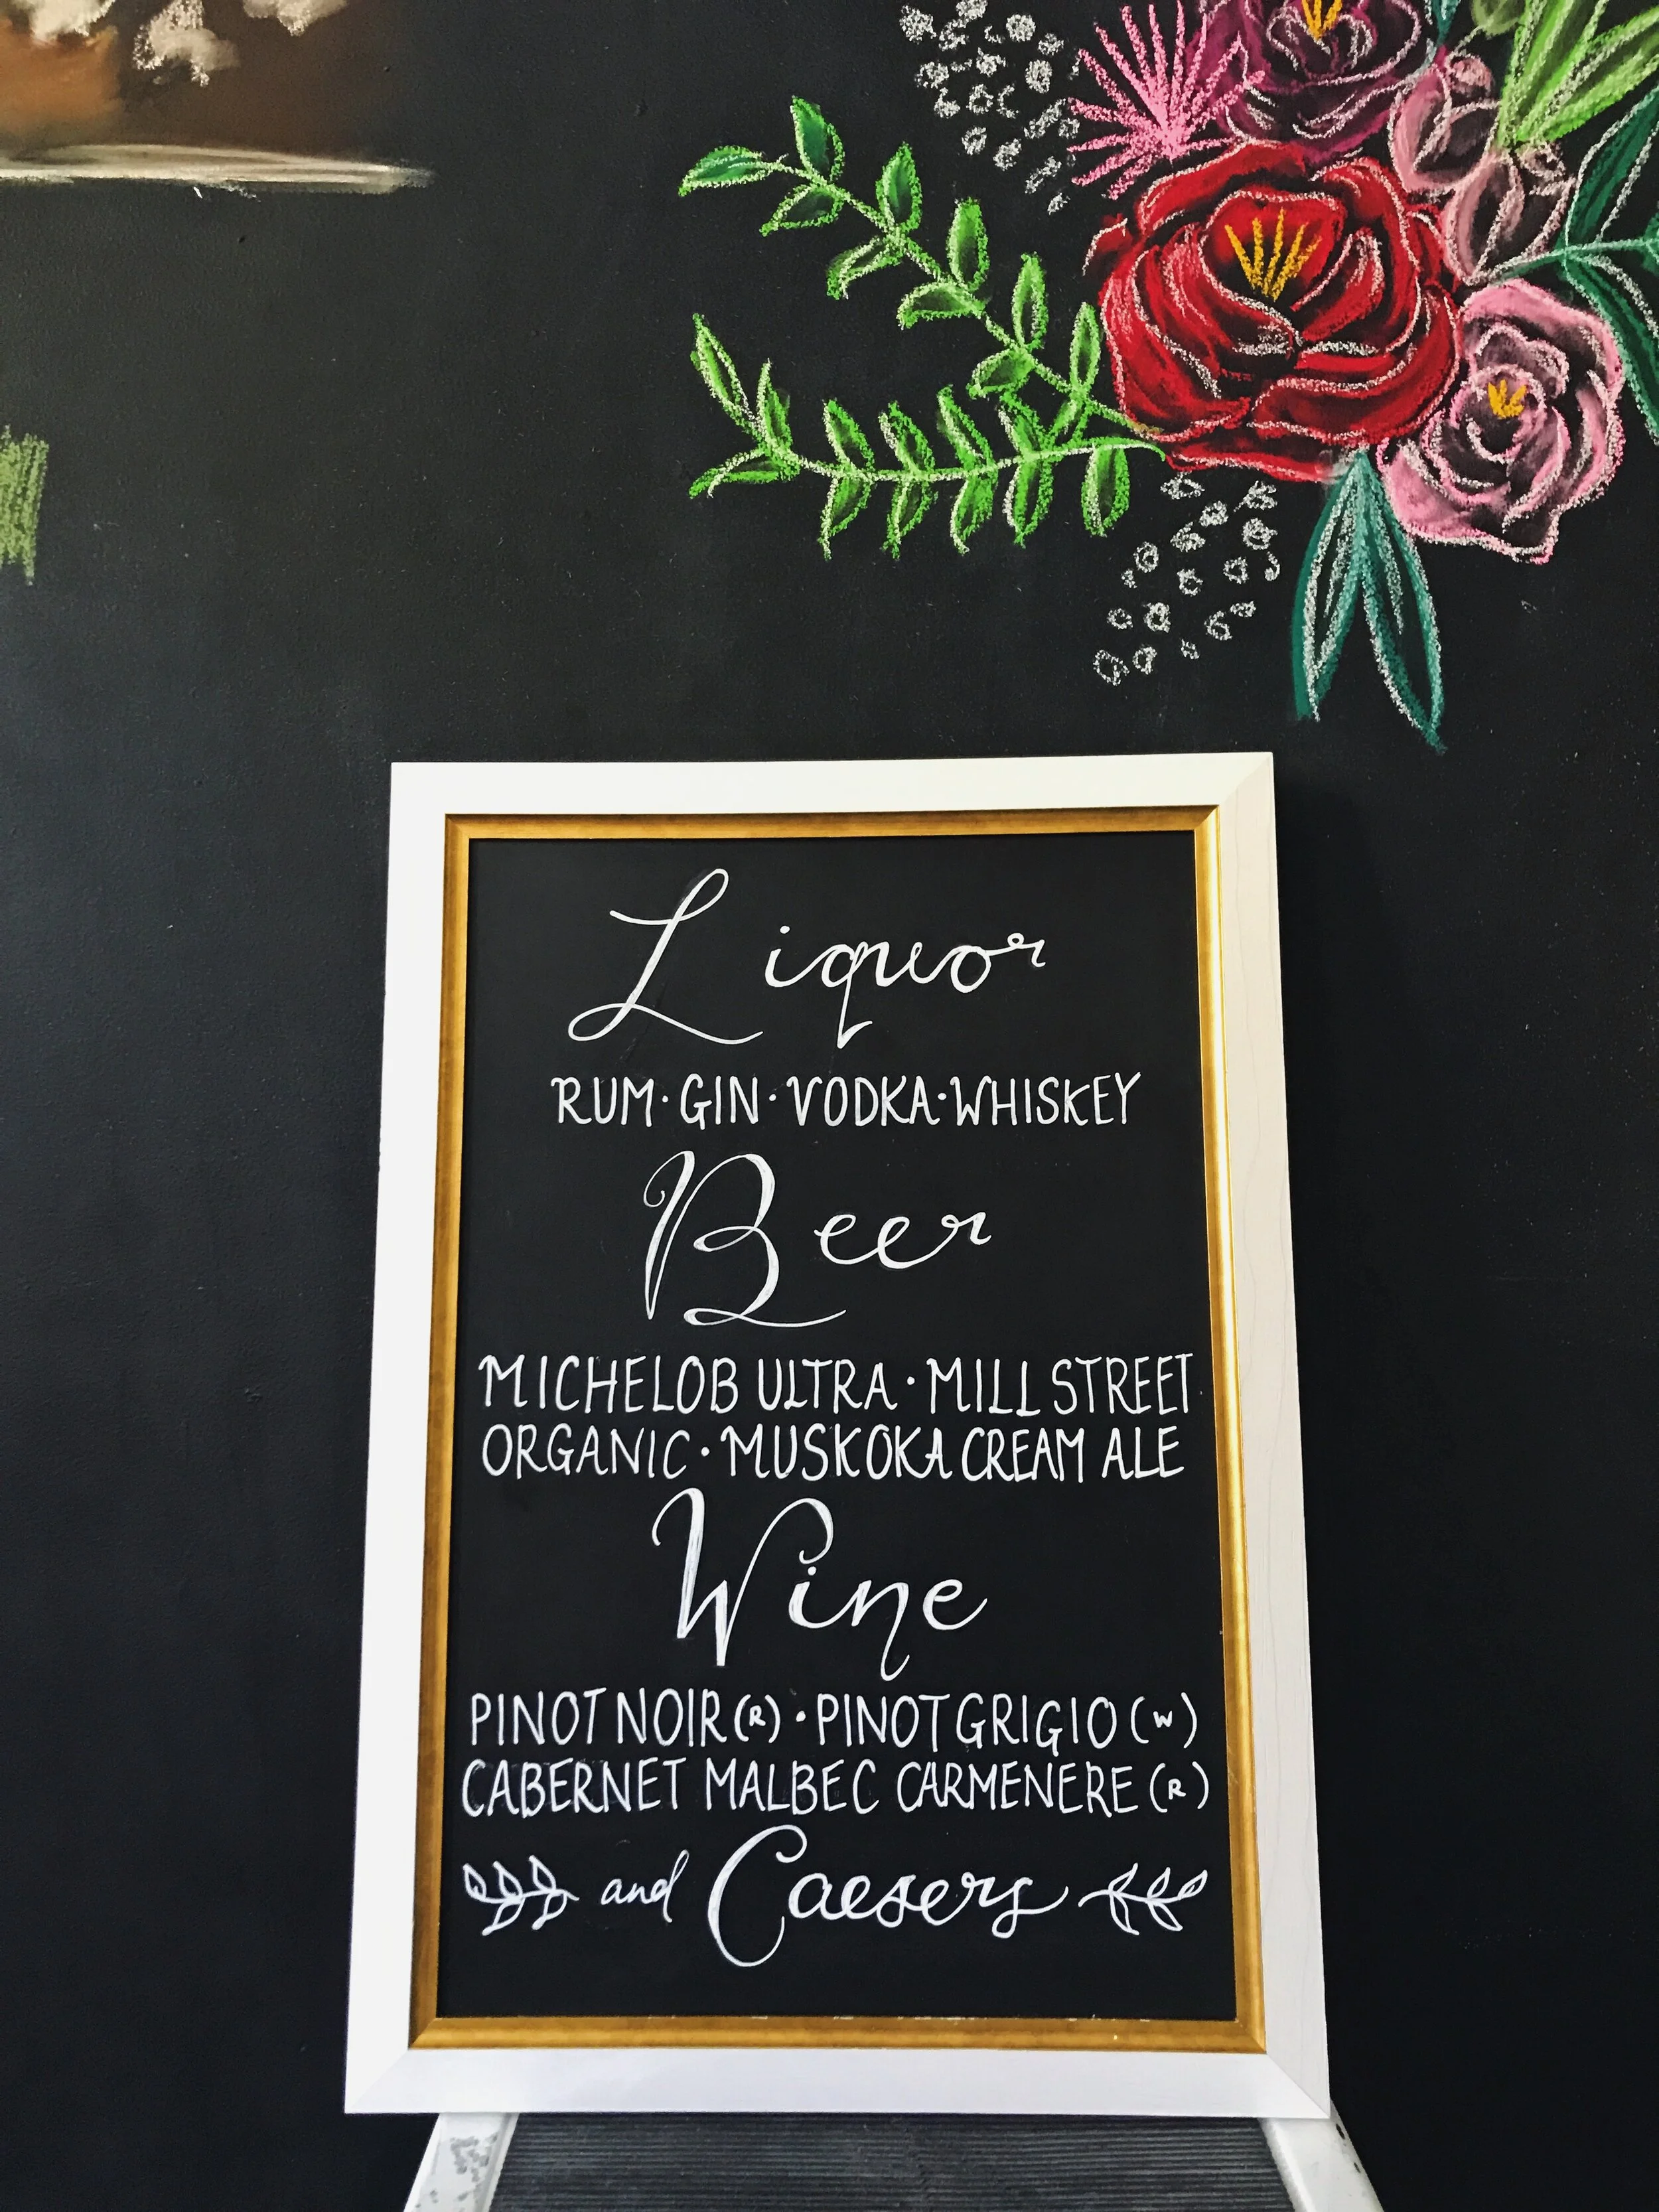 Liquor
RUM · GIN · VODKA · WHISKEY
Beer
MICHELOB ULTRA · MILL STREET
ORGANIC · MUSKOKA CREAM ALE
Wine
PINOT NOIR (R) · PINOT GRIGIO (W)
CABERNET MALBEC CARMENERE (R)
and Caesers